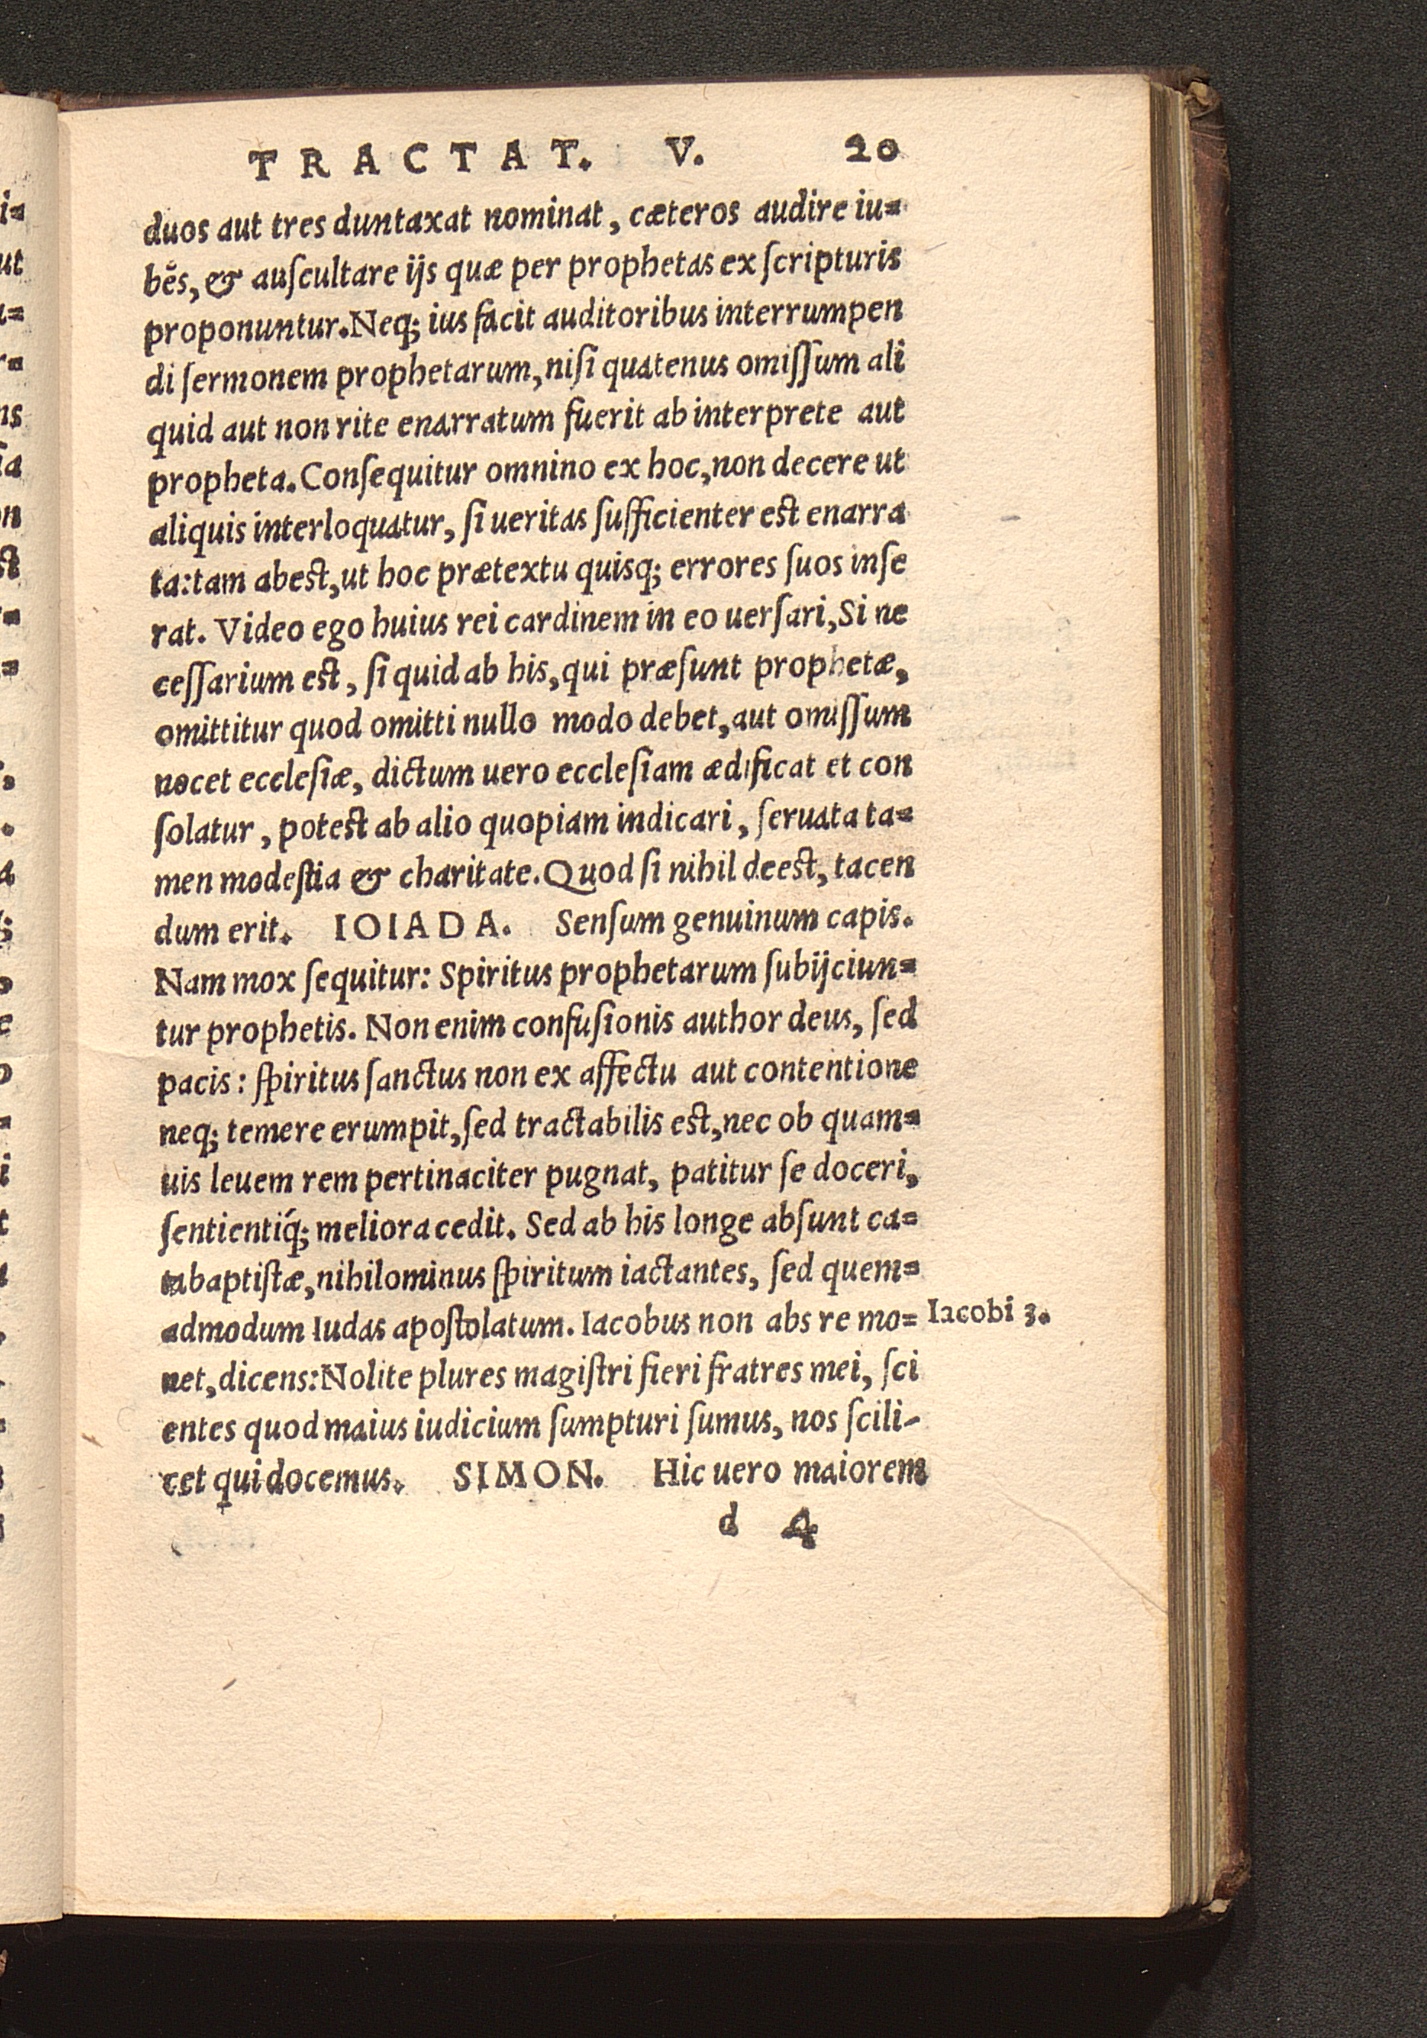 TRACTAT. V. 20
duos aut tres duntaxat nominat, cæteros audire iu=
bēs, & auſcultare ijs quæ per prophetas ex ſcripturis
proponuntur. Neq; ius facit auditoribus interrumpen
di ſermonem prophetarum, niſi quatenus omiſſum ali
quid aut non rite enarratum fuerit ab interprete aut
propheta. Conſequitur omnino ex hoc, non decere ut
aliquis interloquatur, ſi ueritas ſufficienter eſt enarra
ta: tam abeſt, ut hoc prætextu quisq; errores ſuos inſe
rat. Video ego huius rei cardinem in eo uerſari, Si ne
ceſſarium eſt, ſi quid ab his, qui præſunt prophetæ,
omittitur quod omitti nullo modo debet, aut omiſſum
nocet eccleſiæ, dictum uero eccleſiam ædificat et con
ſolatur, poteſt ab alio quopiam indicari, ſeruata ta=
men modeſtia & charitate. Quod ſi nihil deeſt, tacen
dum erit. IOIADA. Senſum genuinum capis.
Nam mox ſequitur: Spiritus prophetarum ſubijciun=
tur prophetis. Non enim confuſionis author deus, ſed
pacis: ſpiritus ſanctus non ex affectu aut contentione
neq; temere erumpit, ſed tractabilis eſt, nec ob quam=
uis leuem rem pertinaciter pugnat, patitur ſe doceri,
ſentientiq́; meliora cedit. Sed ab his longe abſunt ca=
tabaptiſtæ, nihilominus ſpiritum iactantes, ſed quem=
admodum Iudas apoſtolatum. Iacobus non abs re mo= Iacobi 3.
net, dicens: Nolite plures magiſtri fieri fratres mei, ſci
entes quod maius iudicium ſumpturi ſumus, nos ſcili-
cet qui docemus. SIMON. Hic uero maiorem
d 4